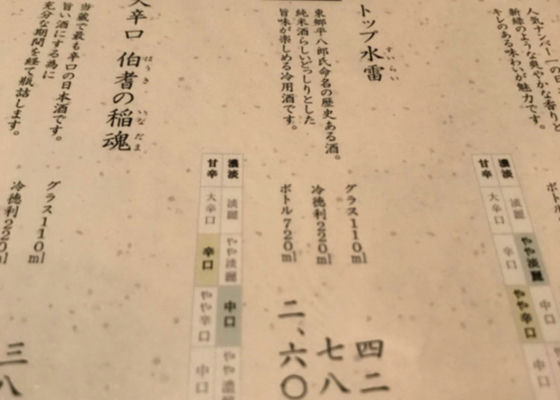 人気ナンバー一の日
新緑のような爽やかな香りと
キレのある味わいが魅力です。
濃淡
淡麗
やや淡麗
中口
甘辛
辛口
やや辛口
トップ水雷
すいらい
東郷平八郎氏命名の歴史ある酒。
純米酒らしいどっしりとした
旨味が楽しめる冷用酒です。
グラス110ml
四二
冷徳利220ml
七八
ボトル720ml
二、六〇
濃淡
淡麗
やや淡麗
中口
やや濃醇
甘辛
大辛口
辛口
やや辛口
中口
大辛口 伯耆の稲魂
ほうき
いなだま
当蔵で最も辛口の日本酒です。
旨い酒にする為に
充分な期間を経て瓶詰します。
グラス110ml
冷徳利220ml
三八